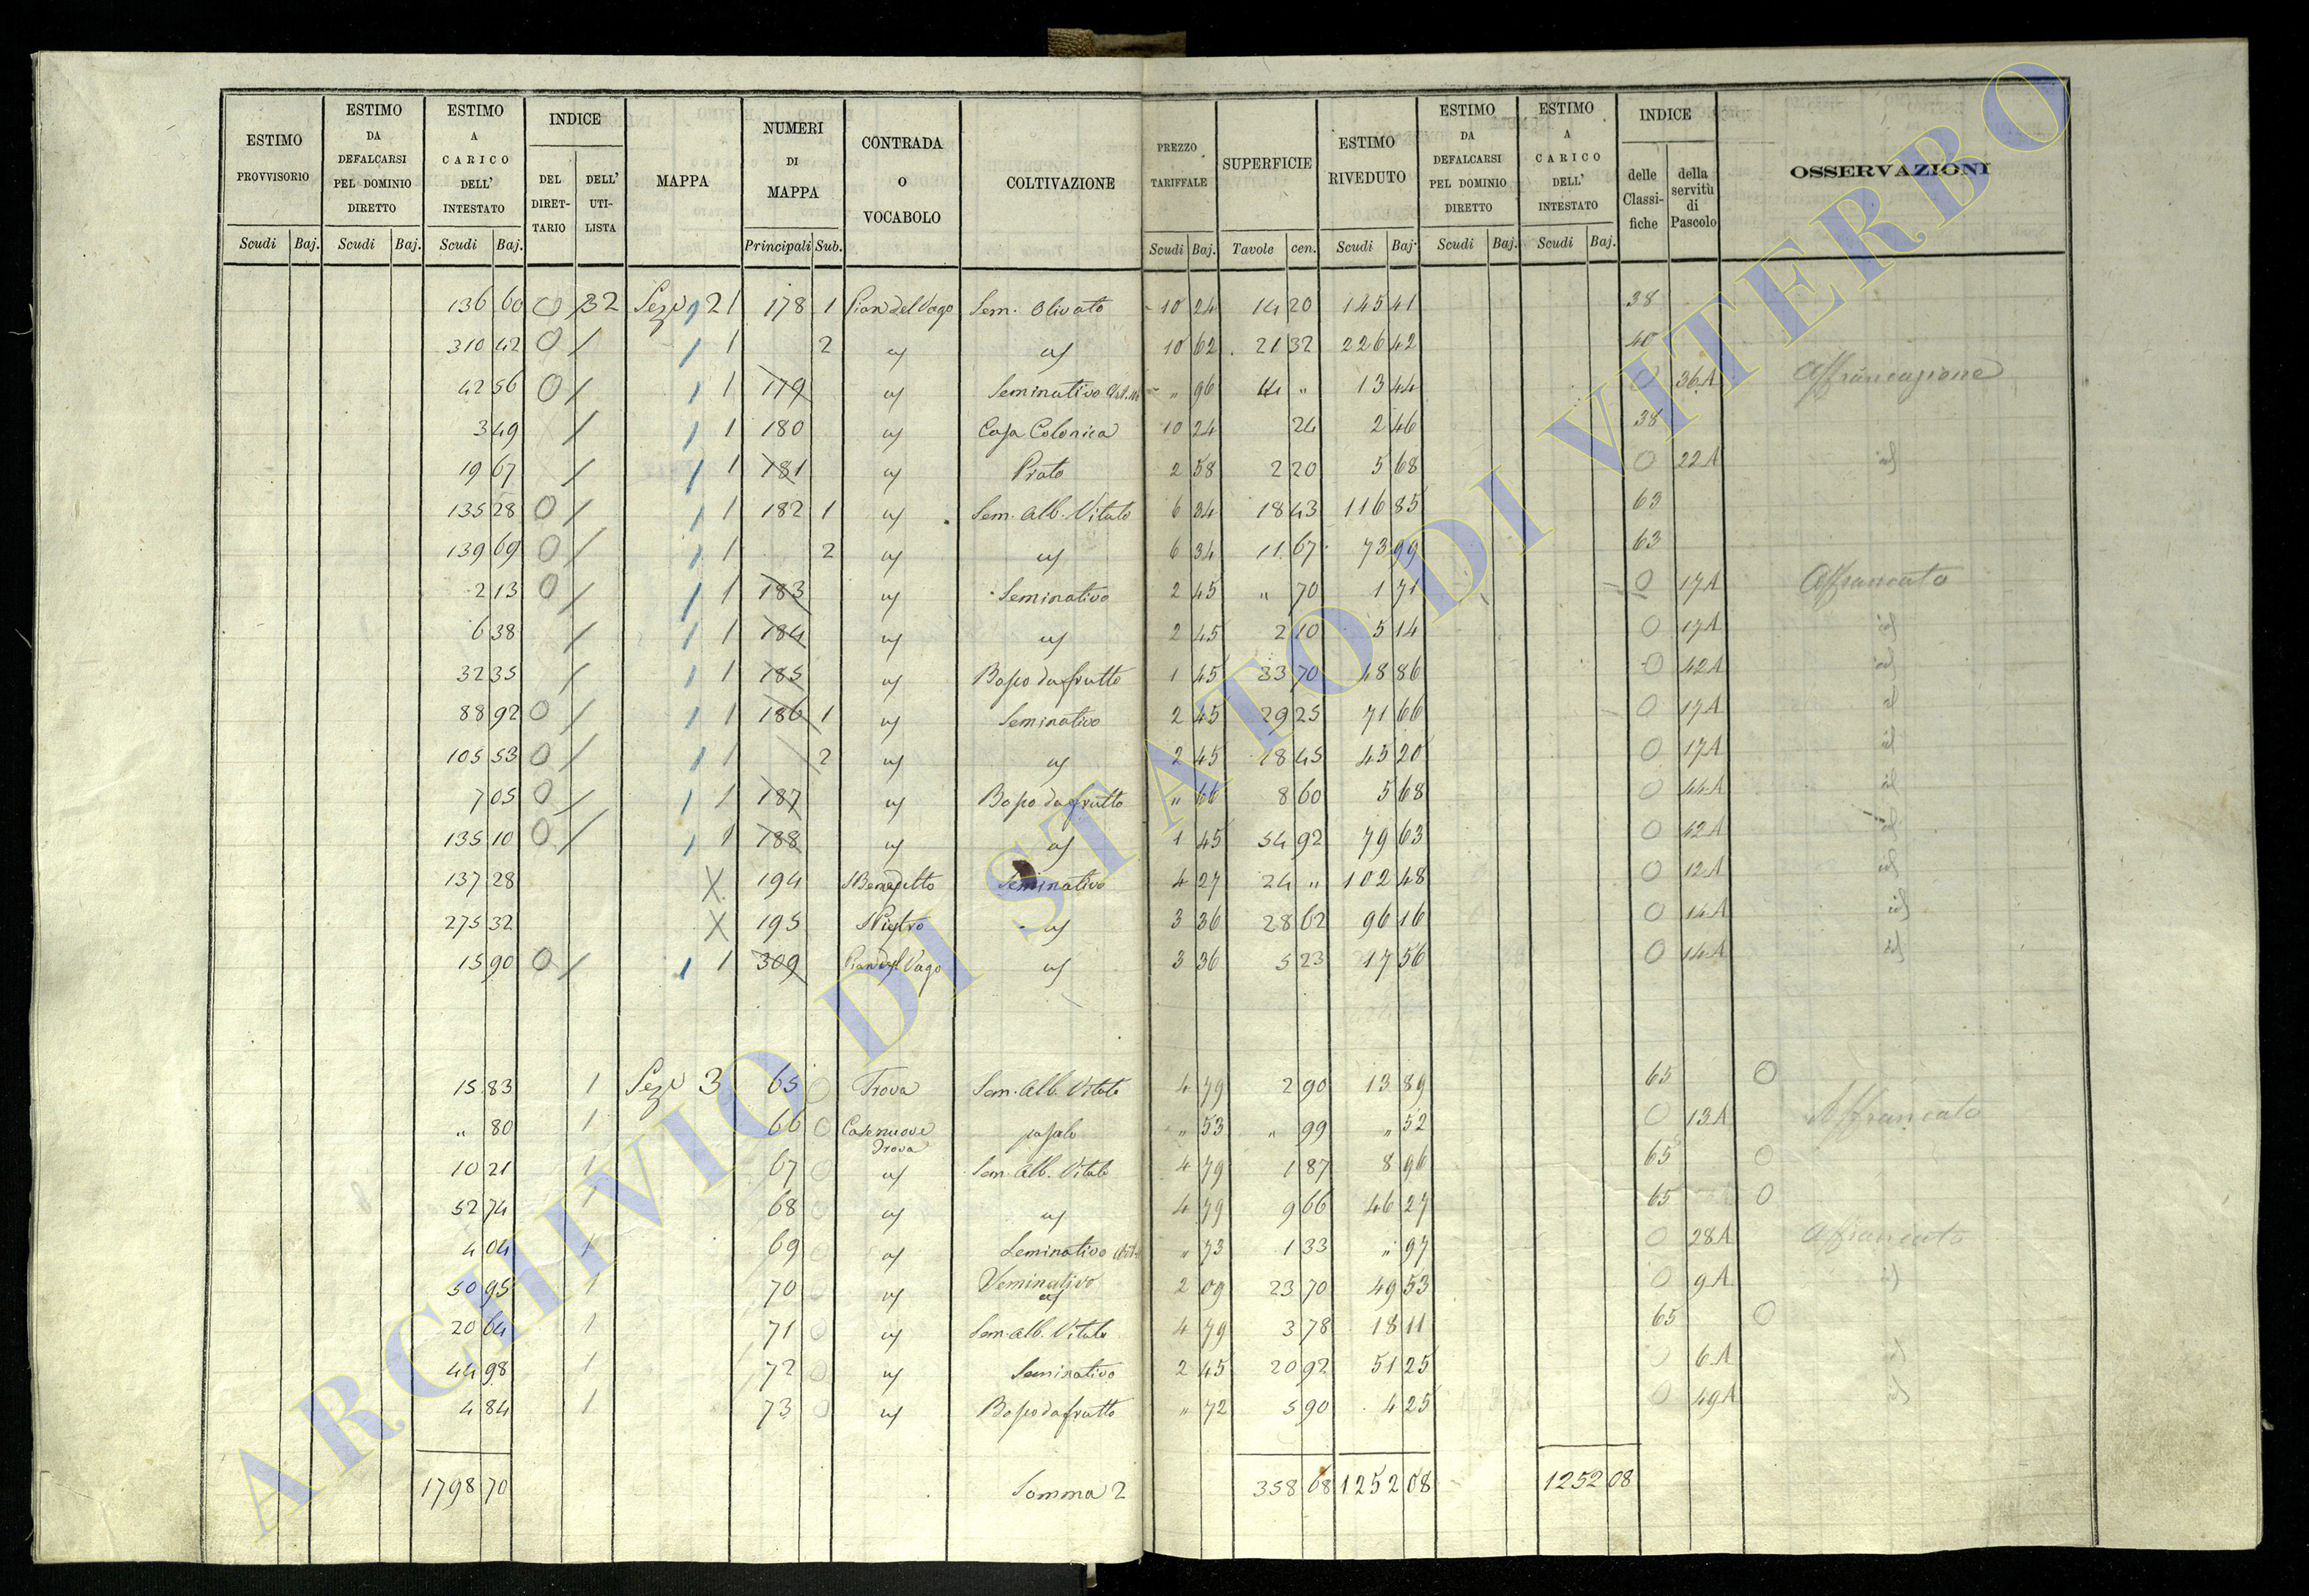 ESTIMO PROVVISORIO
ESTIMO DA DEFALCARSI PEL DOMINIO DIRETTO
ESTIMO A CARICO DELL' INTESTATO
INDICE
DEL DIRET-TARIO
DELL' UTI-LISTA
MAPPA
NUMERI DI MAPPA
CONTRADA O VOCABOLO
COLTIVAZIONE
PREZZO TARIFFALE
SUPERFICIE
ESTIMO RIVEDUTO
ESTIMO DA DEFALCARSI PEL DOMINIO DIRETTO
ESTIMO A CARICO DELL' INTESTATO
INDICE
delle Classi-fiche
della servitù di Pascolo
OSSERVAZIONI
Scudi Baj. Scudi Baj. Scudi Baj. Principali Sub. Scudi Baj. Tavole cen. Scudi Baj. Scudi Baj. Scudi Baj.
136 60 O 32 Sez 2 1 178 1 Pian del Vago Sem. Olivato 10 24 14 20 145 41 38
310 42 O / 1 2 id id 10 62 21 32 226 42 40
42 56 O / 1 179 id Seminativo " 96 14 " 13 44 O 36A Affrancazione
3 49 / 1 180 id Casa Colonica 10 24 24 2 46 38
19 67 / 1 181 id Prato 2 58 2 20 5 68 O 22A id
135 28 O / 1 182 1 id Sem. Alb. Vitato 6 34 18 43 116 85 63
139 69 O / 1 2 id id 6 34 11 67 73 99 63
2 13 O / 1 183 id Seminativo 2 45 " 70 1 71 O 17A Affrancato
6 38 / 1 184 id id 2 45 2 10 5 14 O 17A id
32 35 / 1 185 id Bosco da frutto 1 45 33 70 48 86 O 42A id
88 92 O / 1 186 1 id Seminativo 2 45 29 25 71 66 O 17A id
105 53 O / 1 2 id id 2 45 18 45 45 20 O 17A id
7 05 O / 1 187 id Bosco da frutto " 66 8 60 5 68 O 44A id
135 10 O / 1 188 id id 1 45 54 92 79 63 O 42A id
137 28 X 194 S Benedetto Seminativo 4 27 24 " 102 48 O 12A id
275 32 X 195 S Pietro id 3 36 28 62 96 16 O 14A id
15 90 O / 1 309 Pian del Vago id 3 36 5 23 17 56 O 14A id
15 83 1 Sez 3 65 O Trova Sem. Alb. Vitato 4 79 2 90 13 89 65 O
" 80 1 66 O Casenuove Trova pascolo " 53 " 99 " 52 O 13A Affrancato
10 21 1 67 O id Sem. Alb. Vitato 4 79 1 87 8 96 65 O
52 74 1 68 O id id 4 79 9 66 46 27 65 O
4 04 1 69 O id Seminativo " 73 1 33 " 97 O 28A Affrancato
50 95 1 70 O id Seminativo 2 09 23 70 49 53 O 9A id
20 64 1 71 O id Sem. Alb. Vitato 4 79 3 78 18 11 65 O
44 98 1 72 O id Seminativo 2 45 20 92 51 25 O 6A id
4 84 1 73 O id Bosco da frutto " 72 5 90 4 25 O 49A id
1798 70 Somma 2 358 68 1252 08 1252 08
ARCHIVIO DI STATO DI VITERBO